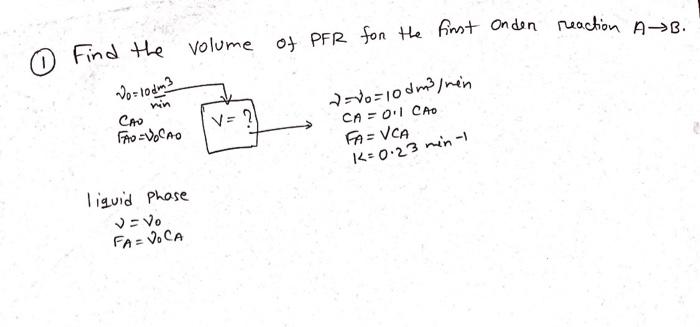 ① Find the volume of PFR for the first order reaction A→B.
ν₀=10dm³/min
CAO
FAO=ν₀CAO
V= ?
ν=ν₀=10dm³/min
CA = 0.1 CAO
FA = VCA
K=0.23 min-1
liquid Phase
ν = ν₀
FA = ν₀CA